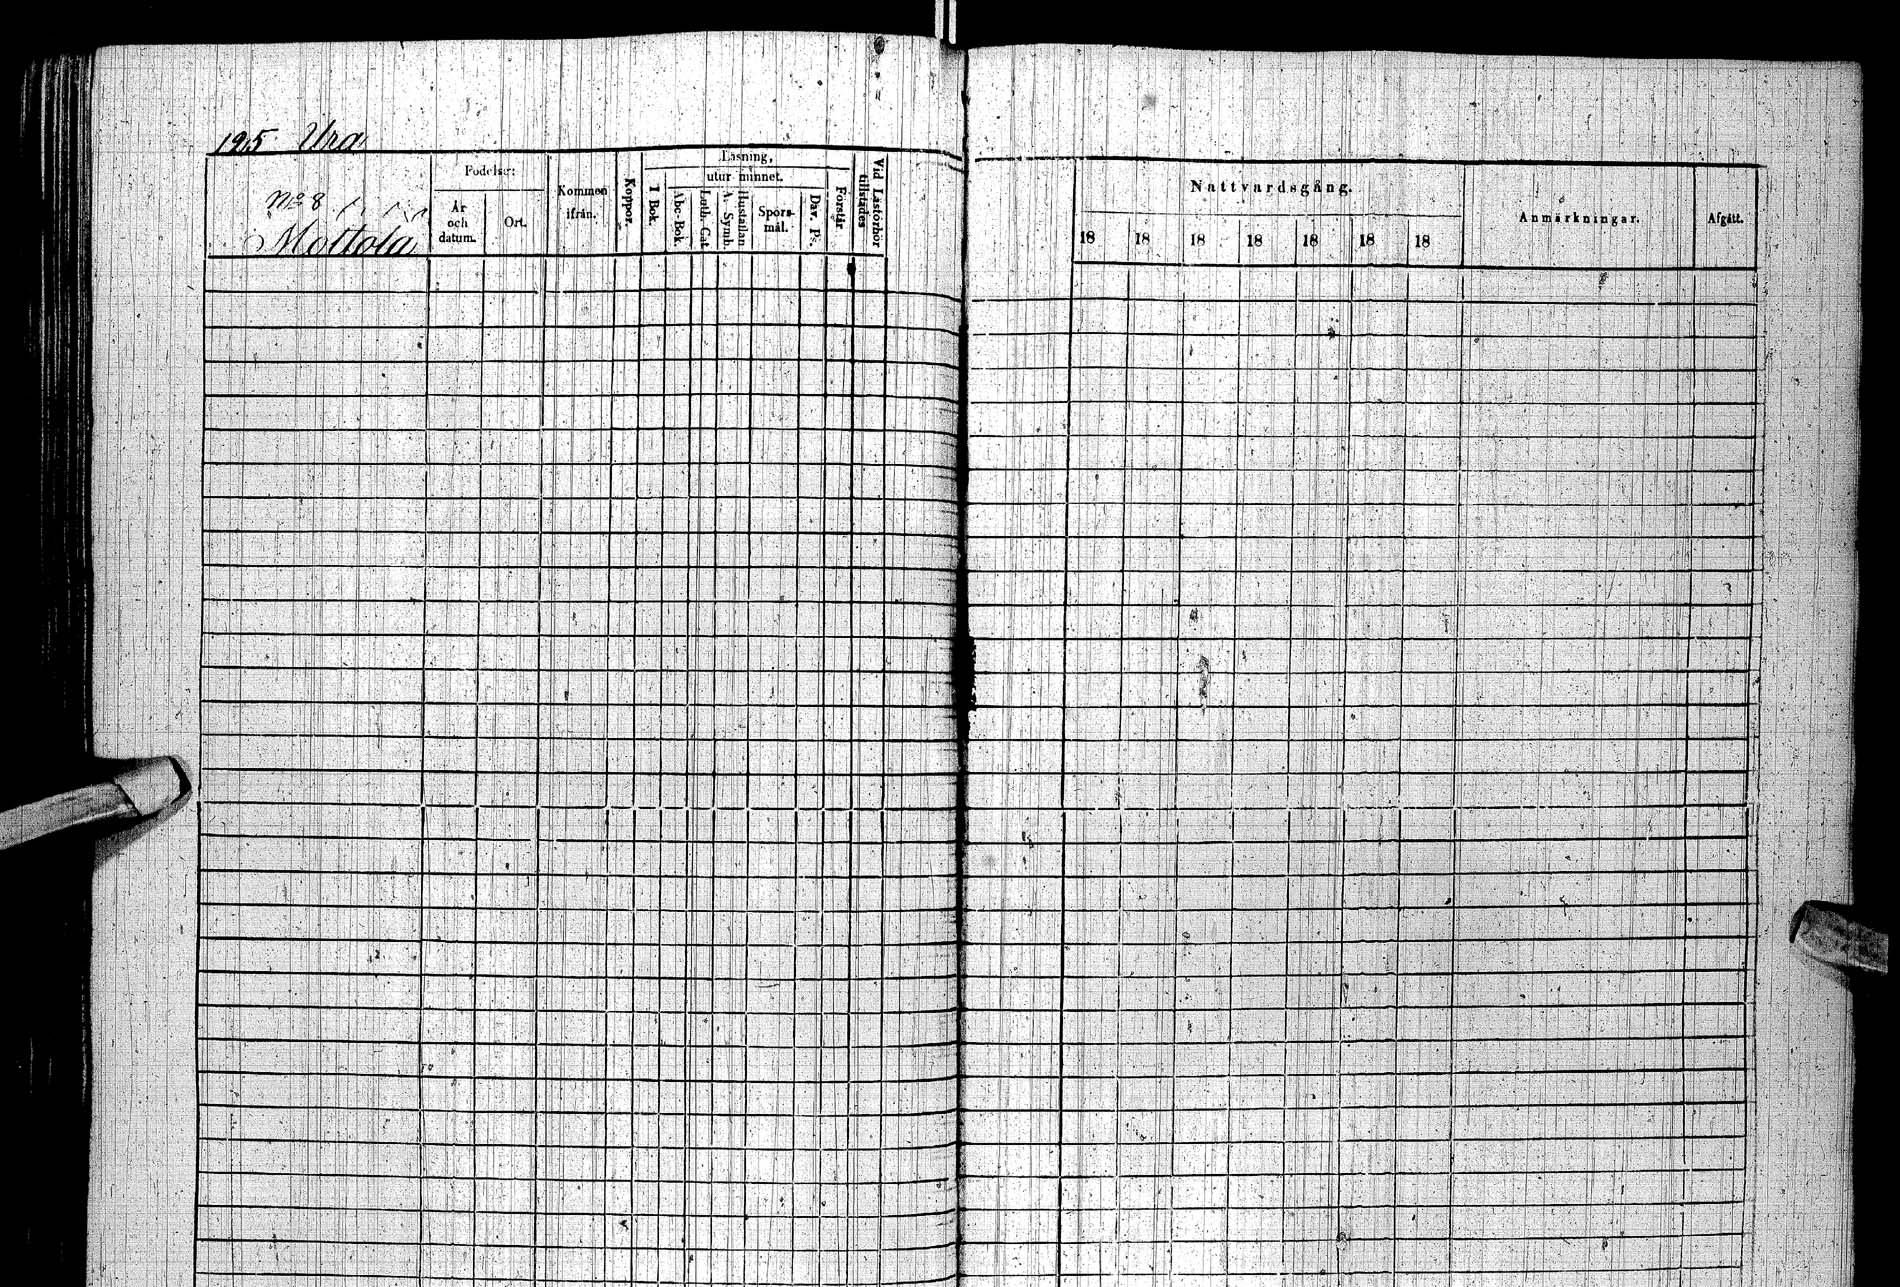 195 Ura
No 8
Mottola
Födelse:
År
och
datum.
Ort.
Kommen
ifrån.
Koppor.
Läsning,
utur minnet.
I Bok.
Abc-Bok.
Luth. Cat
A. Symb.
Hustaflan
Spörs-
mål.
Dav. Ps.
Förstår
Vid Läsförhör
tillstädes
Nattvardsgång.
18 18 18 18 18 18 18
Anmärkningar.
Afgått.